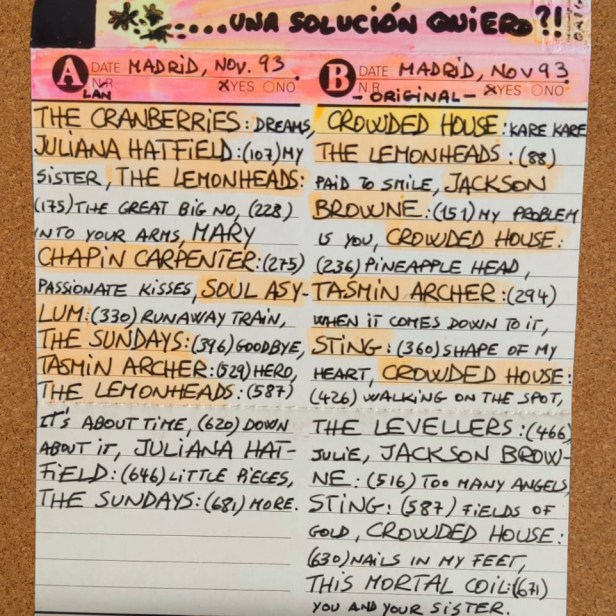 .....UNA SOLUCIÓN QUIERO?!
A DATE MADRID, NOV. 93.
N.R. XYES ONO
LAN
THE CRANBERRIES: DREAMS,
JULIANA HATFIELD:(107)MY
SISTER, THE LEMONHEADS:
(175)THE GREAT BIG NO, (228)
INTO YOUR ARMS, MARY
CHAPIN CARPENTER:(275)
PASSIONATE KISSES, SOUL ASY-
LUM:(330)RUNAWAY TRAIN,
THE SUNDAYS:(396)GOODBYE,
TASMIN ARCHER:(529)HERO,
THE LEMONHEADS:(587)
IT'S ABOUT TIME, (620) DOWN
ABOUT IT, JULIANA HAT-
FIELD:(646)LITTLE PIECES,
THE SUNDAYS:(681) MORE.
B DATE MADRID, NOV 93.
N.R. XYES ONO
- ORIGINAL -
CROWDED HOUSE: KARE KARE
THE LEMONHEADS:(88)
PAID TO SMILE, JACKSON
BROWNE:(151)MY PROBLEM
IS YOU, CROWDED HOUSE:
(236)PINEAPPLE HEAD,
TASMIN ARCHER:(294)
WHEN IT COMES DOWN TO IT,
STING:(360)SHAPE OF MY
HEART, CROWDED HOUSE:
(426) WALKING ON THE SPOT,
THE LEVELLERS:(466)
JULIE, JACKSON BROW-
NE:(516) TOO MANY ANGELS,
STING:(587) FIELDS OF
GOLD, CROWDED HOUSE:
(630)NAILS IN MY FEET,
THIS MORTAL COIL:(671)
YOU AND YOUR SISTER.